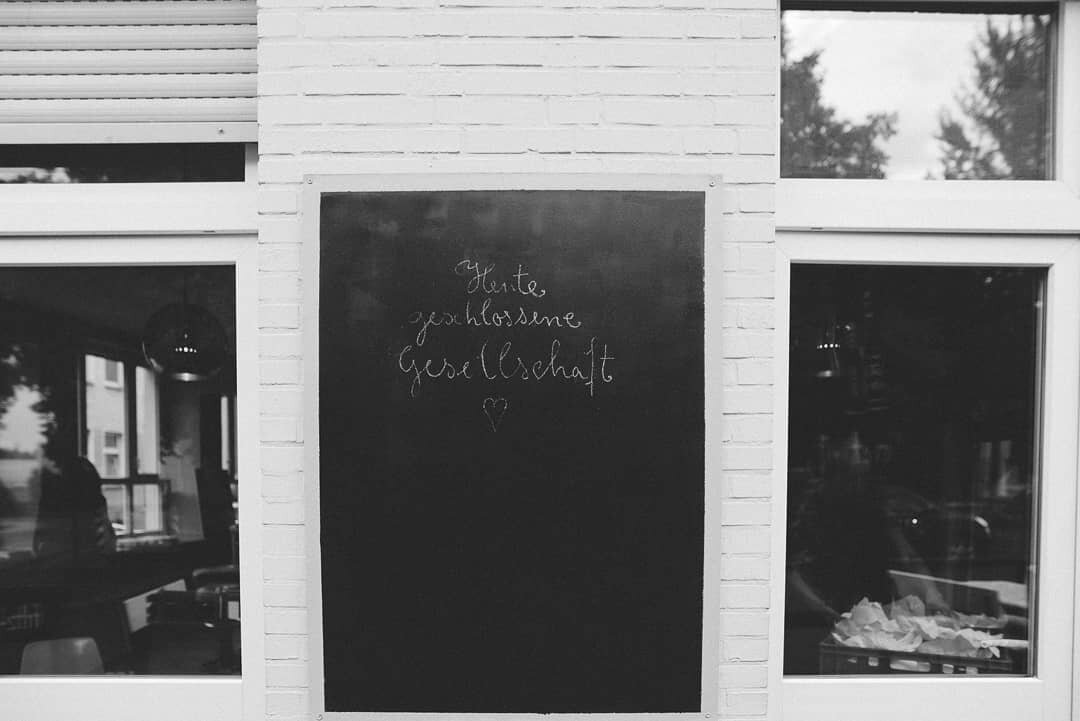 Heute
geschlossene
Gesellschaft